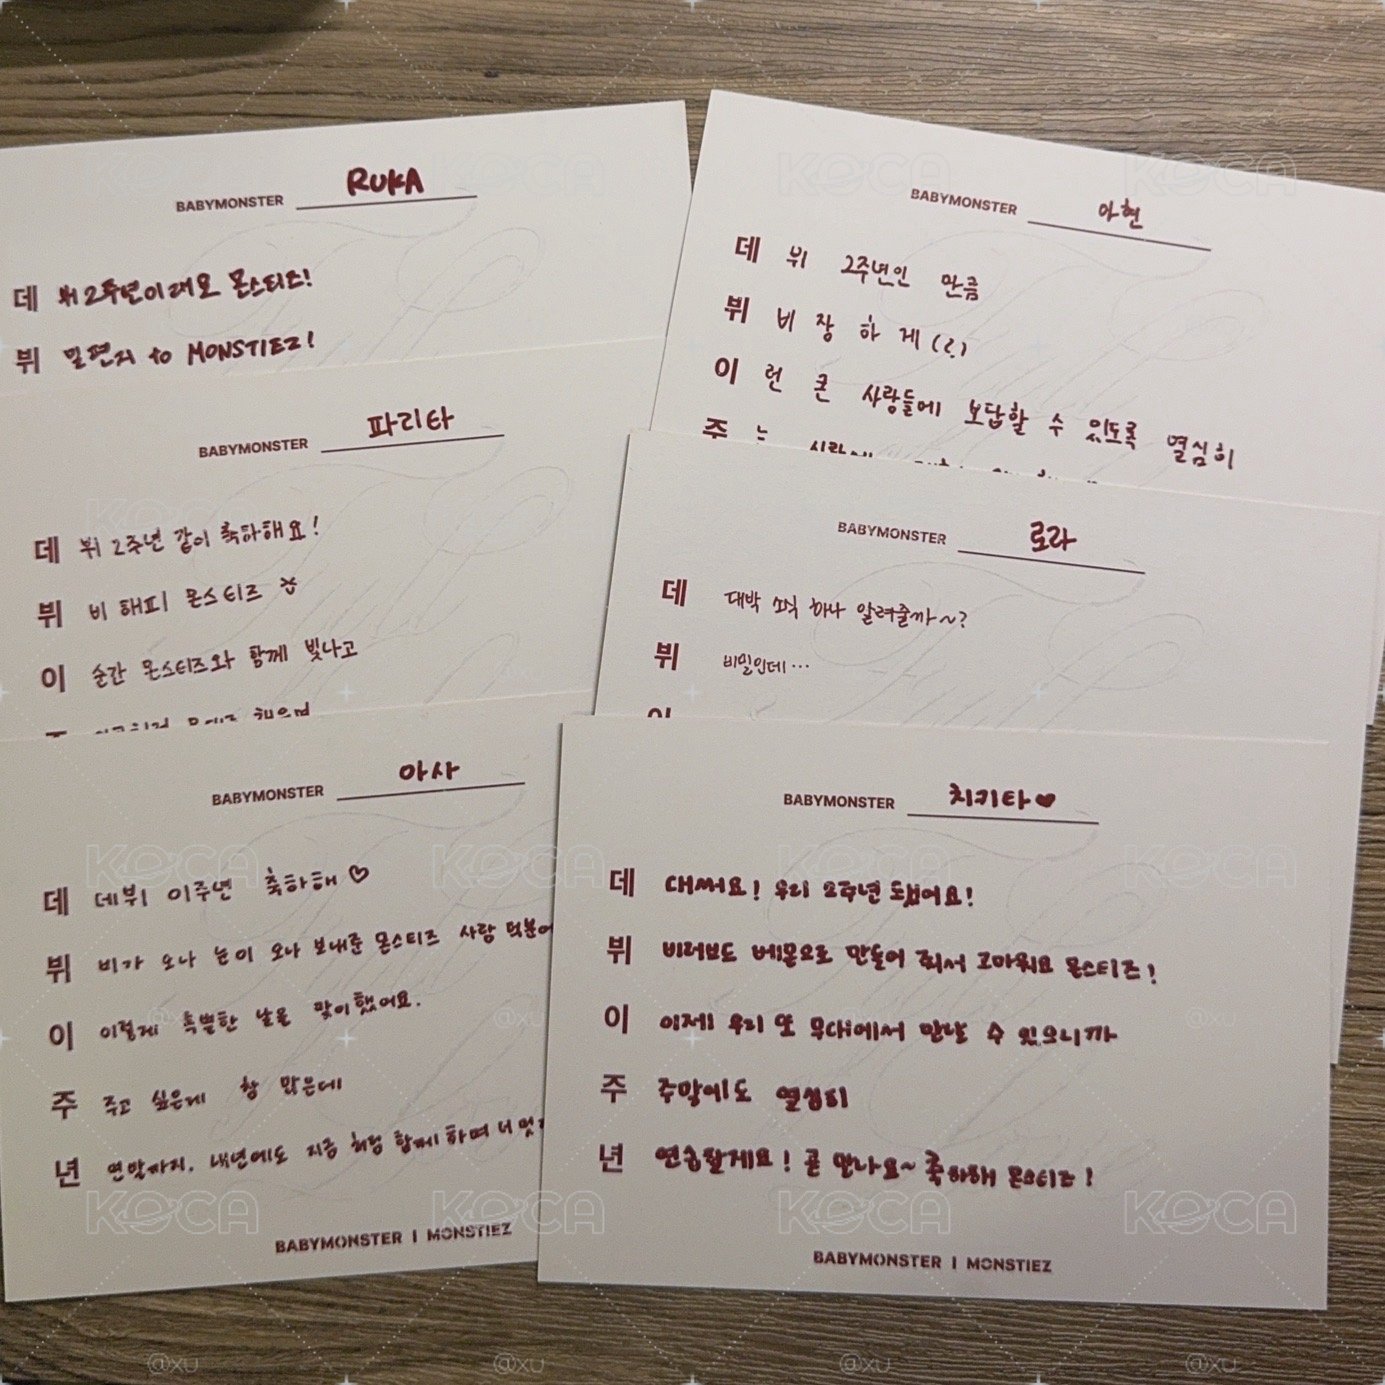 BABYMONSTER RUKA
데 뷔 2주년이래요 몬스티즈!
뷔 밀편지 to MONSTIEZ!
BABYMONSTER 아현
데 뷔 2주년인 만큼
뷔 비장하게(?)
이 런 큰 사랑들에 보답할 수 있도록 열심히
주 는
BABYMONSTER 파리타
데 뷔 2주년 같이 축하해요!
뷔 비 해피 몬스티즈
이 순간 몬스티즈와 함께 빛나고
BABYMONSTER 로라
데 대박 소식 하나 알려줄까~?
뷔 비밀인데...
이
BABYMONSTER 아사
데 데뷔 이주년 축하해♡
뷔 비가 오나 눈이 오나 보내준 몬스티즈 사랑 덕분에
이 이렇게 특별한 날을 맞이했어요.
주 주고 싶은게 참 많은데
년 연말까지. 내년에도 지금 처럼 함께하며 더
BABYMONSTER | MONSTIEZ
BABYMONSTER 치키타♥
데 대써요! 우리 2주년 됐어요!
뷔 비러브드 베몬으로 만들어 줘서 고마워요 몬스티즈!
이 이제 우리 또 무대에서 만날 수 있으니까
주 주말에도 열심히
년 연습할게요! 곧 만나요~ 축하해 몬스티즈!
BABYMONSTER | MONSTIEZ
KOCA
@xu